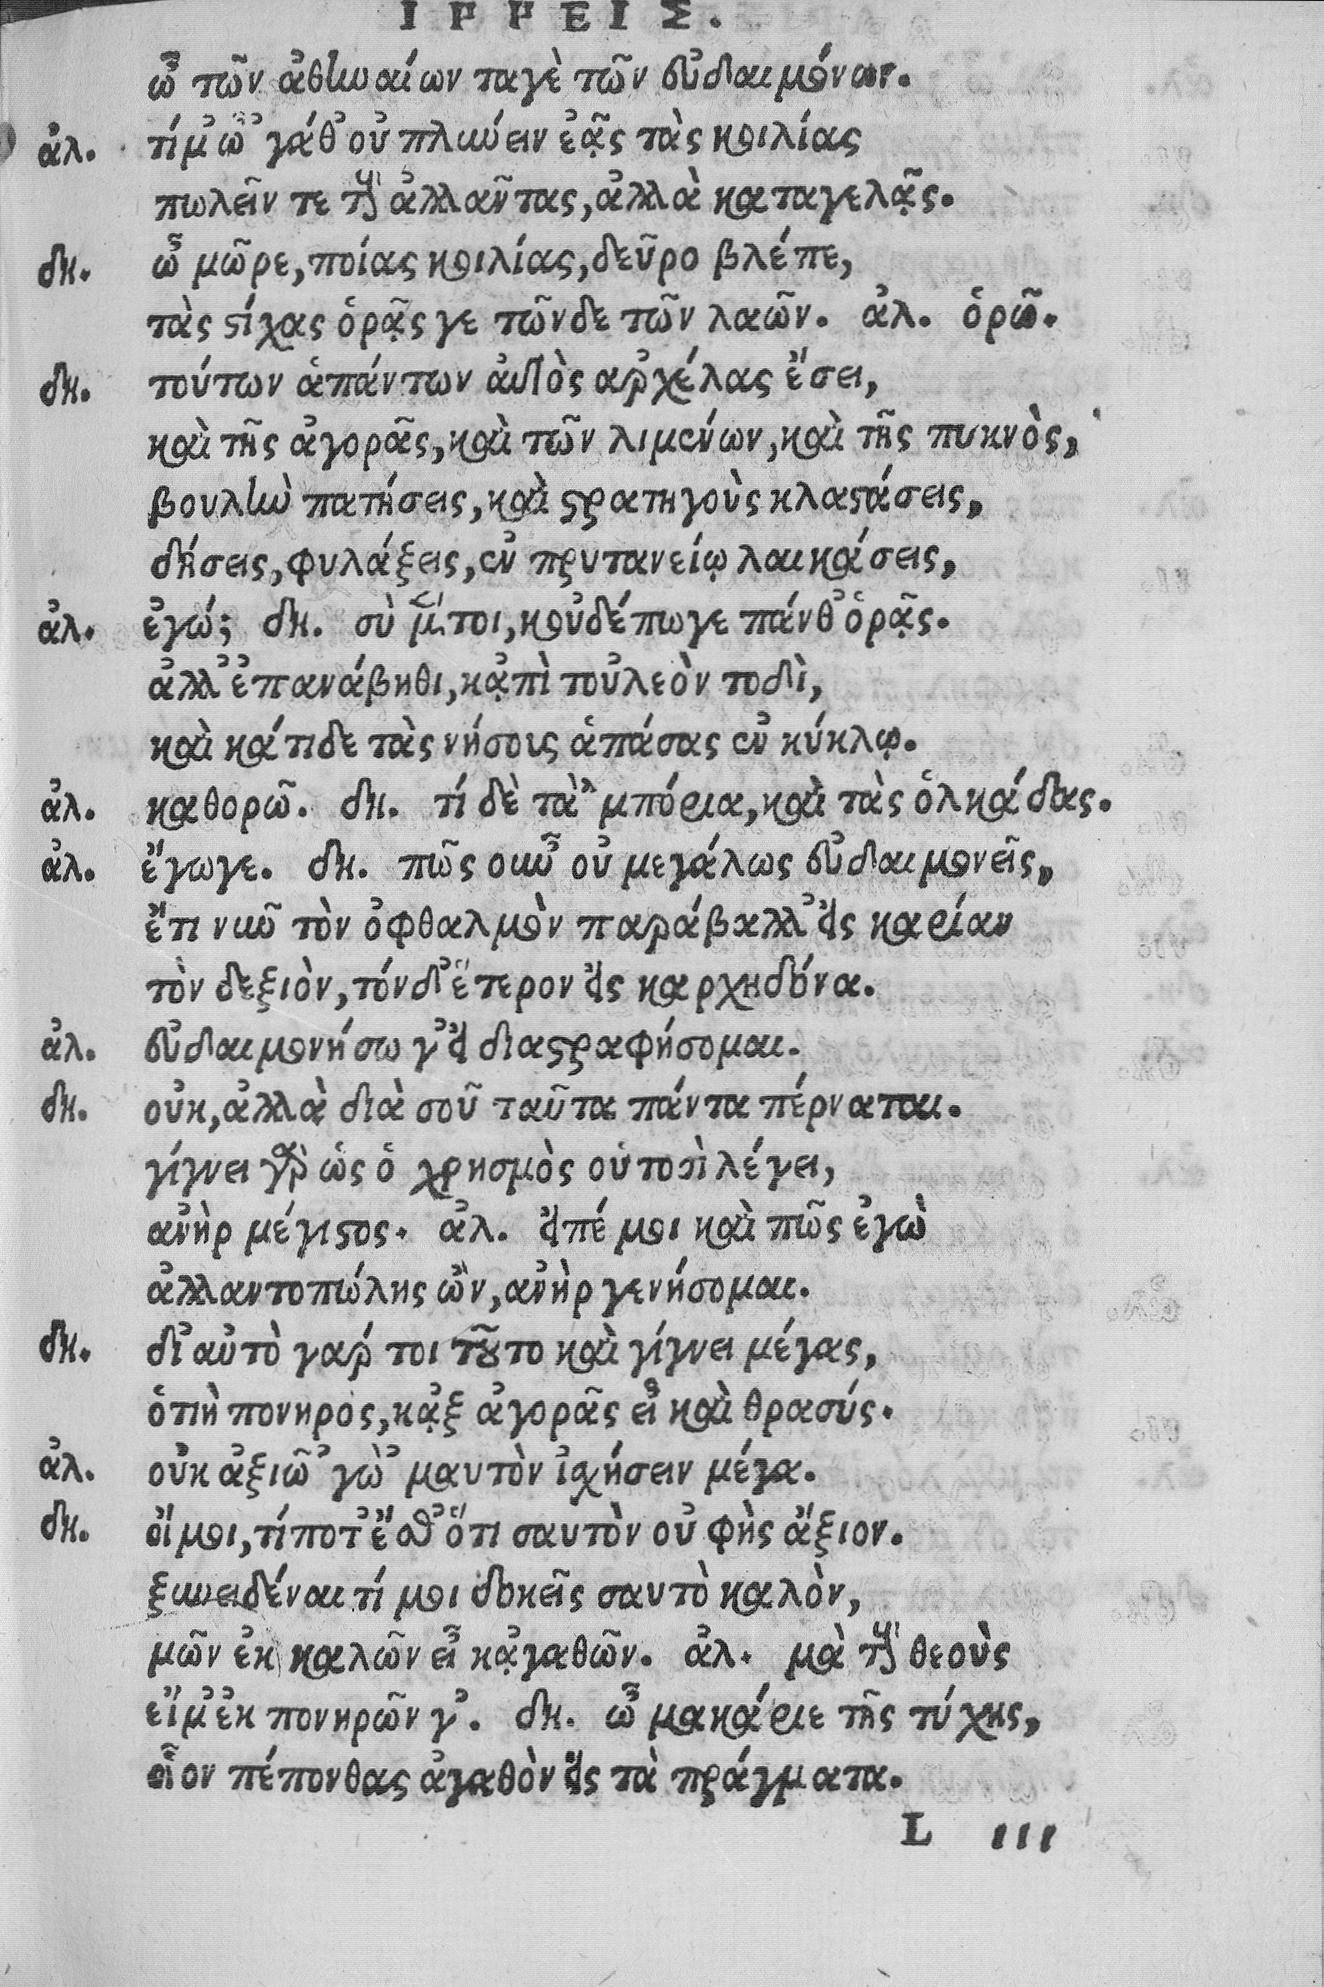 ΙΡΡΕΙΣ.
ὦ τῶν ἀθηναίων ταγὲ τῶν εὐδαιμόνων.
ἀλ. τί μ' ὦ 'γάθ' οὐ πλύνειν ἐᾷς τὰς κοιλίας
πωλεῖν τε τοὺς ἀλλᾶντας, ἀλλὰ καταγελᾷς.
δη. ὦ μῶρε, ποίας κοιλίας, δεῦρο βλέπε,
τὰς στίχας ὁρᾷς γε τῶνδε τῶν λαῶν. ἀλ. ὁρῶ.
δη. τούτων ἁπάντων αὐτὸς ἀρχέλας ἔσει,
καὶ τῆς ἀγορᾶς, καὶ τῶν λιμένων, καὶ τῆς πυκνὸς,
βουλὴν πατήσεις, καὶ στρατηγοὺς κλαστάσεις,
δήσεις, φυλάξεις, ἐν πρυτανείῳ λαικάσεις,
ἀλ. ἐγώ; δη. σὺ μέντοι, κοὐδέπωγε πάνθ' ὁρᾷς.
ἀλλ' ἐπανάβηθι, κᾀπὶ τοὐλεὸν τοδὶ,
καὶ κάτιδε τὰς νήσους ἁπάσας ἐν κύκλῳ.
ἀλ. καθορῶ. δη. τί δὲ τὰ 'μπόρια, καὶ τὰς ὁλκάδας.
ἀλ. ἔγωγε. δη. πῶς οὖν οὐ μεγάλως εὐδαιμονεῖς,
ἔτι νῦν τὸν ὀφθαλμὸν παράβαλλ' εἰς καρίαν
τὸν δεξιὸν, τόνδ' ἕτερον εἰς καρχηδόνα.
ἀλ. εὐδαιμονήσω γ' εἰ διαστραφήσομαι.
δη. οὐκ, ἀλλὰ διὰ σοῦ ταῦτα πάντα πέρναται.
γίγνει γὰρ ὡς ὁ χρησμὸς οὑτοσὶ λέγει,
ἀνὴρ μέγιστος. ἀλ. εἰπέ μοι καὶ πῶς ἐγὼ
ἀλλαντοπώλης ὢν, ἀνὴρ γενήσομαι.
δη. δι' αὐτὸ γάρ τοι τοῦτο καὶ γίγνει μέγας,
ὁτιὴ πονηρός, κᾀξ ἀγορᾶς εἶ καὶ θρασύς.
ἀλ. οὐκ ἀξιῶ 'γὼ 'μαυτὸν ἰσχήσειν μέγα.
δη. οἴ μοι, τί ποτ' ἔσθ' ὅτι σαυτὸν οὐ φῂς ἄξιον.
ξυνειδέναι τί μοι δοκεῖς σαυτὸ καλὸν,
μῶν ἐκ καλῶν εἶ κᾀγαθῶν. ἀλ. μὰ τοὺς θεοὺς
εἴ μ' ἐκ πονηρῶν γ'. δη. ὦ μακάριε τῆς τύχης,
οἷον πέπονθας ἀγαθὸν εἰς τὰ πράγματα.
L III